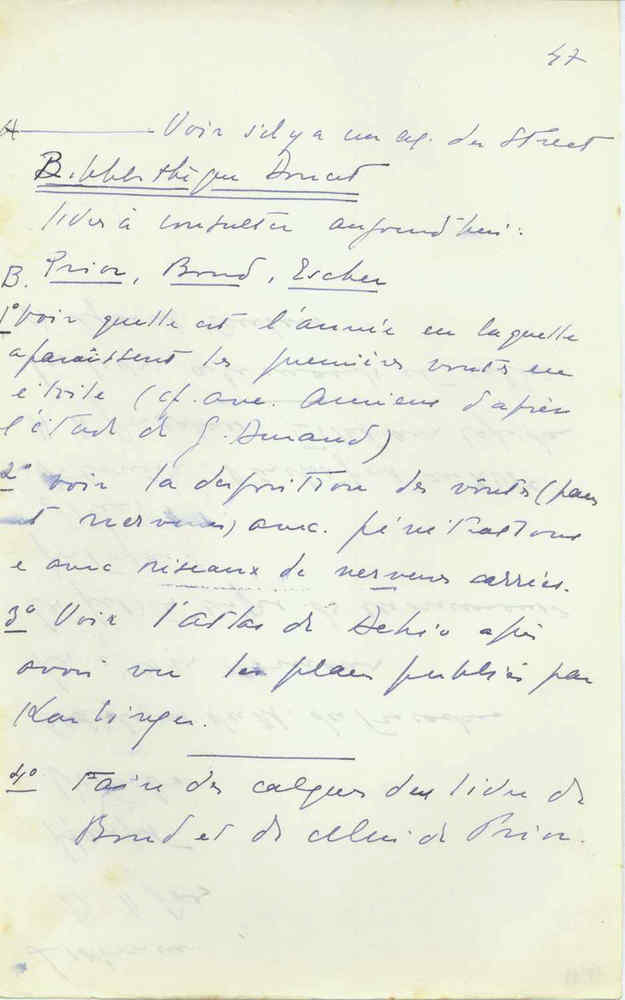 47
A ——— Voir s'il y a un ex. du Street
Bibliothèque Doucet
livres à consulter aujourd'hui :
B. Prior, Bond, Escher
1° Voir quelle est l'année en laquelle
aparaissent les premières voûtes en
étoile (cf. avec Amiens d'après
l'étude de G. Durand)
2° voir la disposition des voûtes (plans
et nervures) avec pénétrations
e avec réseaux de nervures carrées.
3° Voir l'atlas de Dehio après
avoir vu les plans publiés par
Karlinger.
4° Faire des calques du livre de
Bond et de celui de Prior.